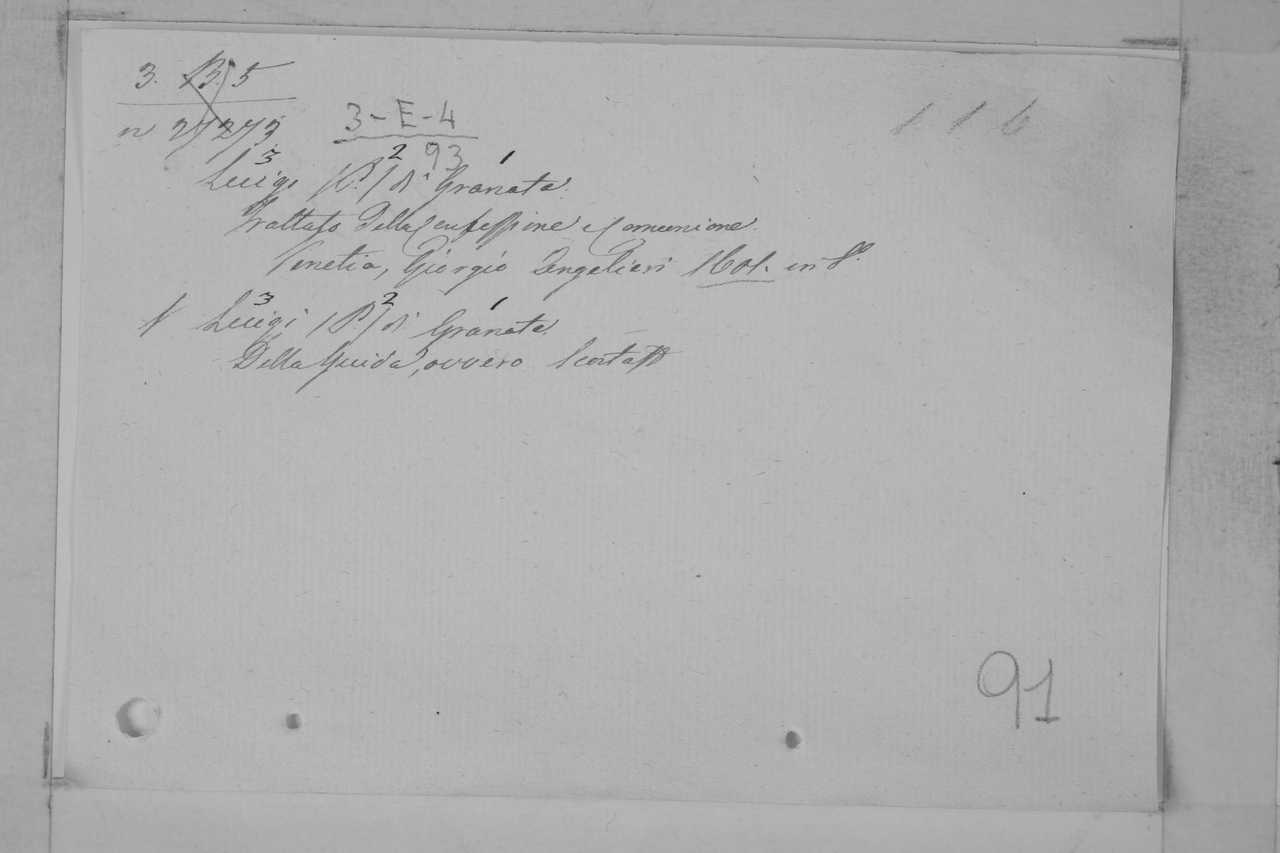 3. B. 5
3-E-4
116
n 27273
93
3 2 1
Luigi (P.) di Granata.
Trattato della Confessione e Comunione.
Venetia, Giorgio Angelieri 1601. in 8º.
3 2 1
Luigi (P.) di Granata.
Della Guida, ovvero Scorta
91